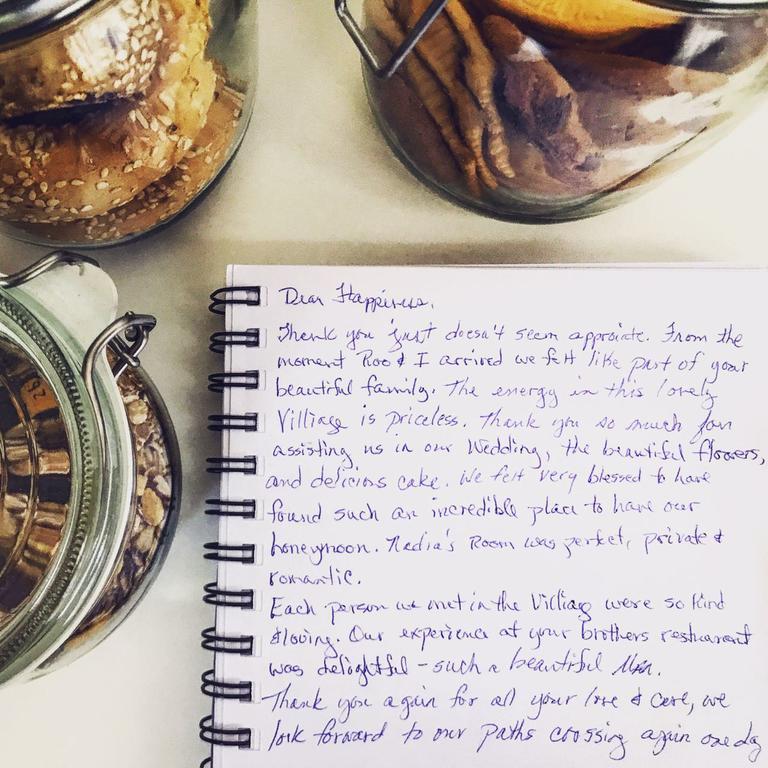 Dear Happiness,
Thank you just doesn't seem approiate. From the
moment Roo & I arrived we felt like part of your
beautiful family. The energy in this lovely
Villiage is priceless. Thank you so much for
assisting us in our Wedding, the beautiful flowers,
and delicious cake. We felt very blessed to have
found such an incredible place to have our
honeymoon. Nadia's Room was perfect, private &
romantic.
Each person we met in the Villiag were so kind
& loving. Our experience at your brothers restuarant
was delightful - such a beautiful
Thank you again for all your love & care, we
look forward to our paths crossing again one day